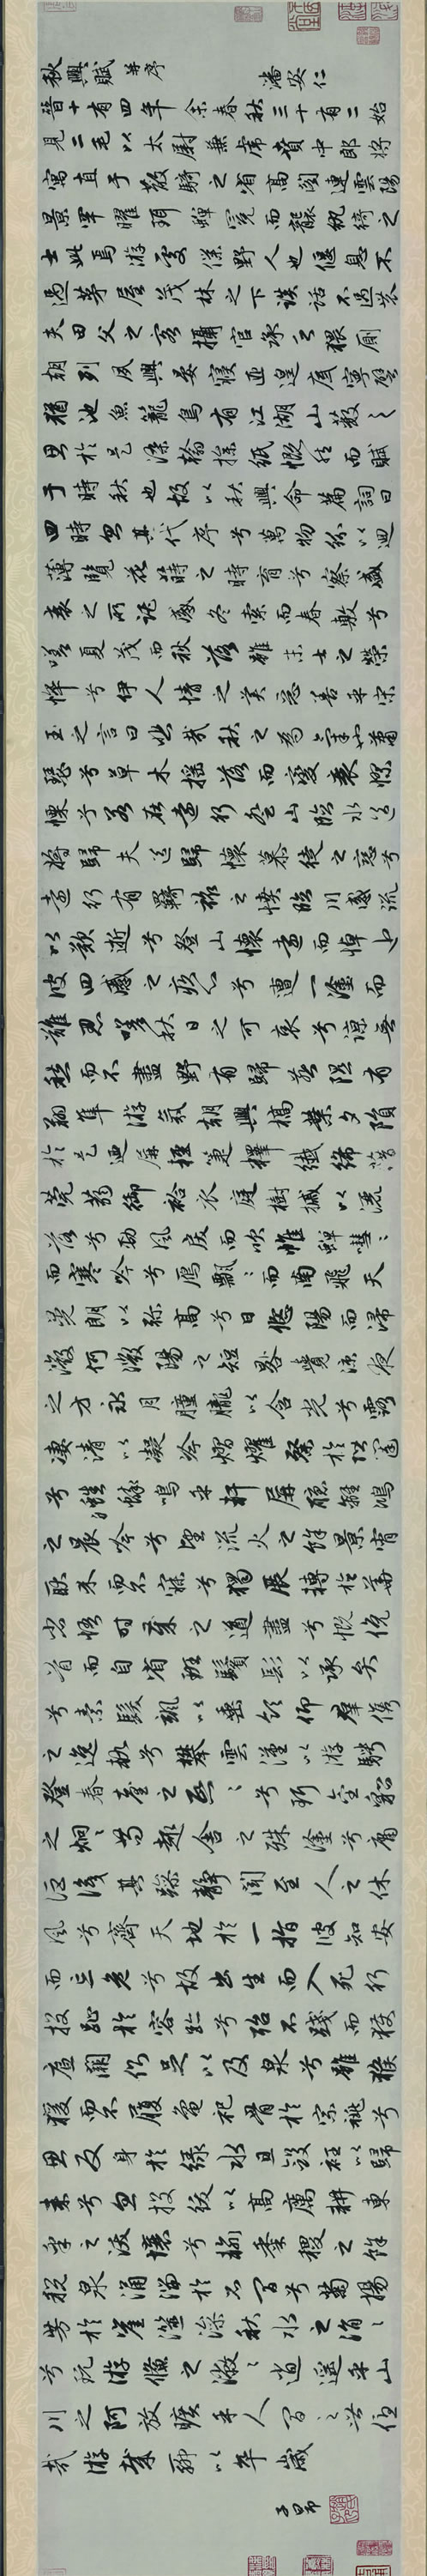 秋興賦 并序 潘安仁
晉十有四年余春秋三十有二始
見二毛以太尉兼虎賁中郎將
寓直于散騎之省高閣連雲陽
景罕曜珥蟬冕而襲紈綺之
士此焉游處僕野人也偃息不
過茅屋茂林之下談話不過農
夫田父之客攝官承乏猥厠
朝列夙興晏寢匪遑底寧譬
猶池魚籠鳥有江湖山藪之
思於是染翰操紙慨然而賦
于時秋也故以秋興命篇詞曰
四時忽其代序兮萬物紛以迴
薄覽花蒔之時育兮察盛
衰之所託感冬索而春敷兮
嗟夏茂而秋落雖末士之榮
悴兮伊人情之美惡善乎宋
玉之言曰悲哉秋之為氣也蕭
瑟兮草木搖落而變衰憀
慄兮若在遠行登山臨水送
將歸夫送歸懷慕徒之戀兮
遠行有羈旅之憤臨川感流
以歎逝兮登山懷遠而悼近
彼四慼之疚心兮遭一塗而
難忍嗟秋日之可哀兮諒無
愁而不盡野有歸燕隰有
翔隼游氛朝興槁葉夕隕
於是迺屏輕箑釋纖絺藉
莞蒻御袷衣庭樹摵以灑
落兮勁風戾而吹帷蟬嘒〻
而寒吟兮鴈飄〻而南飛天
晃朗以彌高兮日悠陽而浸
微何微陽之短晷覺涼夜
之方永月朣朧以含光兮露
凄清以凝冷熠燿粲於階闥
兮蟋蟀鳴乎軒屏聽離鴻
之晨吟兮望流火之餘景宵
耿介而不寐兮獨展轉於華
省悟時歲之遒盡兮慨俛
首而自省斑鬢髟以承弁
兮素髮颯以垂領仰羣儁
之逸軌兮攀雲漢以游騁
登春臺之熙〻兮珥金貂
之炯〻苟趣舍之殊塗兮庸
詎識其躁靜聞至人之休
風兮齊天地於一指彼知安
而忘危兮故出生而入死行
投趾於容跡兮殆不踐而獲
底闕側足以及泉兮雖猴
猨而不履龜祀骨於宗祧兮
思反身於綠水且斂衽以歸
來兮忽投紱以高厲耕東
皋之沃壤兮輸黍稷之餘
稅泉涌湍於石間兮菊揚
芳於崖澨澡秋水之涓〻
兮玩游鯈之潎〻逍遥乎山
川之阿放曠乎人間之世優
哉游哉聊以卒歲
子昂